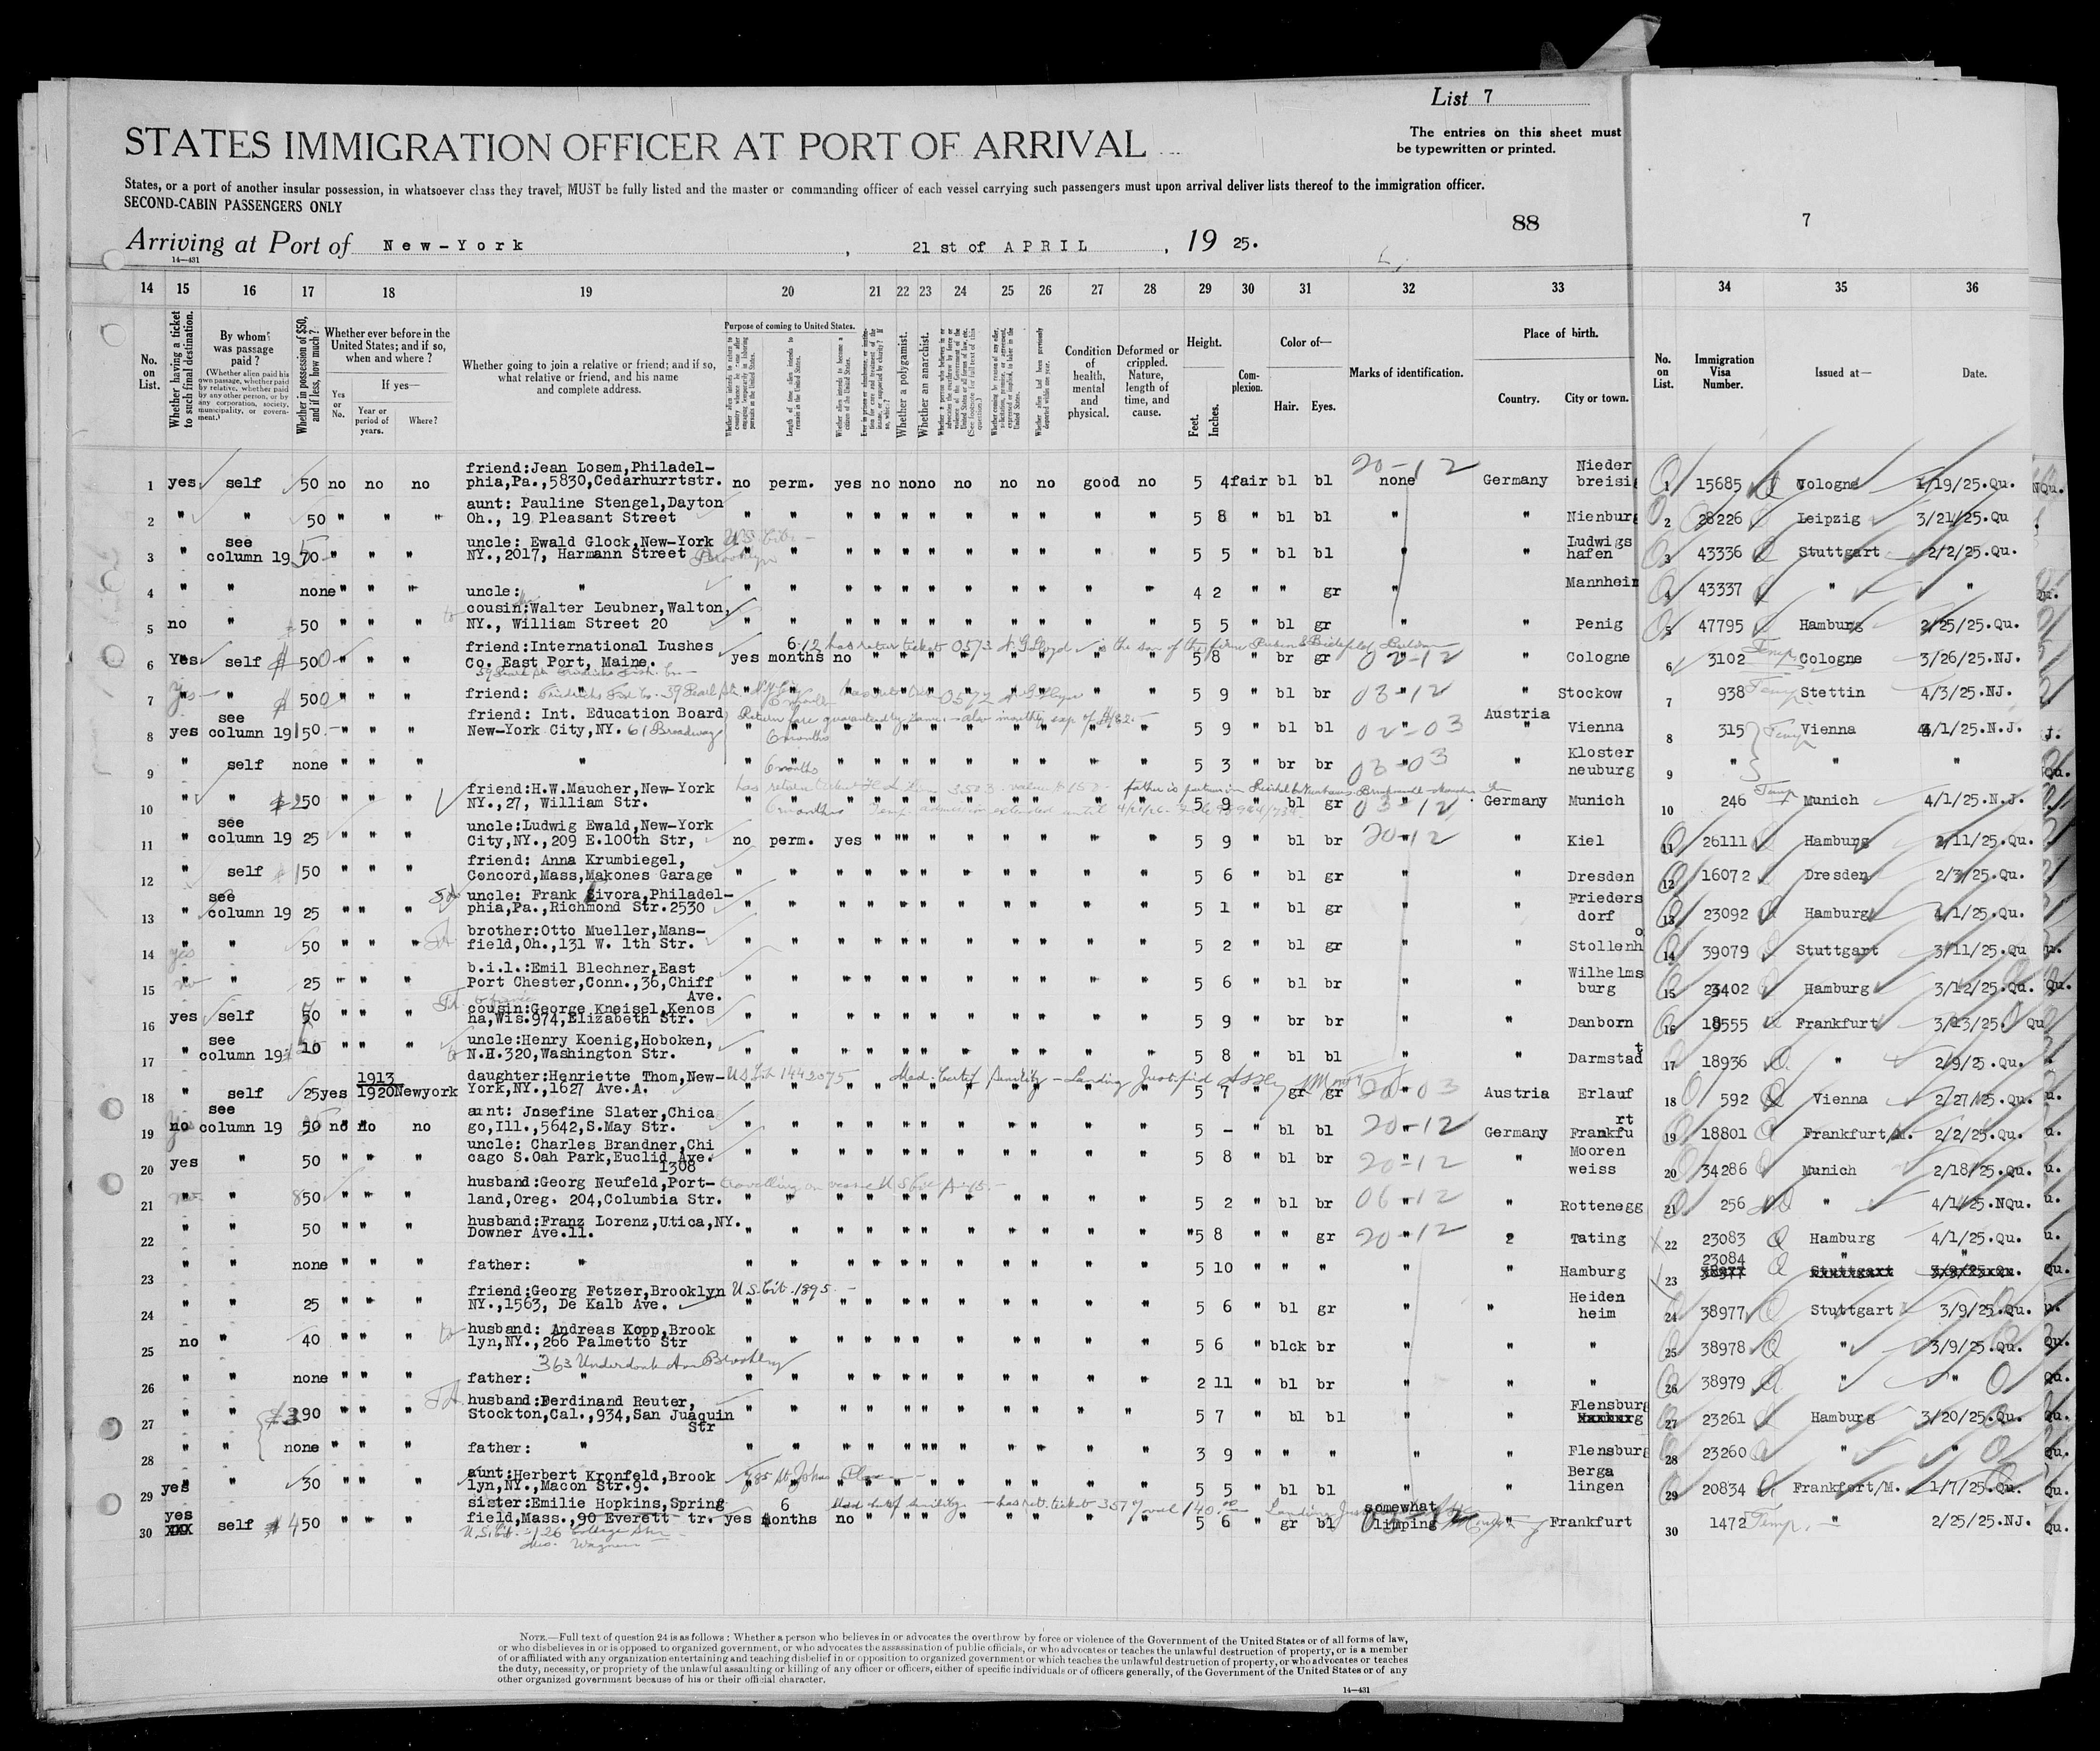 List 7
The entries on this sheet must
be typewritten or printed.
STATES IMMIGRATION OFFICER AT PORT OF ARRIVAL
States, or a port of another insular possession, in whatsoever class they travel, MUST be fully listed and the master or commanding officer of each vessel carrying such passengers must upon arrival deliver lists thereof to the immigration officer.
SECOND-CABIN PASSENGERS ONLY
88
7
Arriving at Port of New-York, 21 st of APRIL, 19 25.
14—431
14 15 16 17 18 19 20 21 22 23 24 25 26 27 28 29 30 31 32 33 34 35 36
No. on List.
Whether having a ticket to such final destination.
By whom was passage paid?
(Whether alien paid his own passage, whether paid by relative, whether paid by any other person, or by any corporation, society, municipality, or government.)
Whether in possession of $50, and if less, how much?
Whether ever before in the United States; and if so, when and where?
If yes—
Yes or No.
Year or period of years.
Where?
Whether going to join a relative or friend; and if so, what relative or friend, and his name and complete address.
Purpose of coming to United States.
Length of time alien intends to remain in the United States.
Whether a polygamist.
Whether an anarchist.
Condition of health, mental and physical.
Deformed or crippled. Nature, length of time, and cause.
Height.
Feet.
Inches.
Complexion.
Color of—
Hair.
Eyes.
Marks of identification.
Place of birth.
Country.
City or town.
No. on List.
Immigration Visa Number.
Issued at—
Date.
1 yes self 50 no no no friend:Jean Losem,Philadel-
phia,Pa.,5830,Cedarhurrtstr. no perm. yes no no no no no no good no 5 4 fair bl bl none 20-12 Germany Nieder
breisi 1 15685 Cologne 1/19/25.Qu.
2 " " 50 " " " aunt: Pauline Stengel,Dayton
Oh., 19 Pleasant Street " " " " " " " " " " " 5 8 " bl bl " " Nienburg 2 28226 Leipzig 3/21/25.Qu
3 " see
column 19 70 " " " uncle: Ewald Glock,New-York
NY.,2017, Harmann Street Brooklyn " " " " " " " " " " " 5 5 " bl bl " " Ludwigs
hafen 3 43336 Stuttgart 2/2/25.Qu.
4 " " none " " " uncle: " " " " " " " " " " " " 4 2 " " gr " " Mannheim 4 43337 " "
5 no " 50 " " " cousin:Walter Leubner,Walton,
NY., William Street 20 " " " " " " " " " " " 5 5 " bl gr " " Penig 5 47795 Hamburg 2/25/25.Qu.
6 Yes self $ 500 " " " friend:International Lushes
Co. East Port, Maine. yes 6
months no " " " " " " " " 5 8 " br gr 02-12 " Cologne 6 3102 Temp. Cologne 3/26/25.NJ.
7 yes " $ 500 " " " friend: " " " " " " " " " " " 5 9 " bl br 03-12 " Stockow 7 938 Temp. Stettin 4/3/25.NJ.
8 yes see
column 19 150 " " " friend: Int. Education Board
New-York City,NY. 61 Broadway " 6 months " " " " " " " " " 5 9 " bl bl 02-03 Austria
" Vienna 8 315 Temp Vienna 4/1/25.N.J.
9 " self none " " " " " 6 months " " " " " " " " " 5 3 " br br 03-03 Kloster
neuburg 9 " " "
10 " " $ 250 " " " friend:H.W.Maucher,New-York
NY.,27, William Str. " 6 months " " " " " " " " " 5 9 " bl gr 03-12 Germany Munich 10 246 Temp Munich 4/1/25.N.J.
11 " see
column 19 25 " " " uncle:Ludwig Ewald,New-York
City,NY.,209 E.100th Str, no perm. yes " " " " " " " " 5 9 " bl br 20-12 " Kiel 11 26111 Hamburg 2/11/25.Qu.
12 " self 150 " " " friend: Anna Krumbiegel,
Cencord,Mass,Makones Garage " " " " " " " " " " " 5 6 " bl gr " " Dresden 12 16072 Dresden 2/3/25.Qu.
13 " see
column 19 25 " " " uncle: Frank Sivora,Philadel-
phia,Pa.,Richmond Str.2530 " " " " " " " " " " " 5 1 " bl gr " " Frieders
dorf 13 23092 Hamburg 4/1/25.Qu.
14 yes " 50 " " " brother:Otto Mueller,Mans-
field,Oh.,131 W. 1th Str. " " " " " " " " " " " 5 2 " bl gr " " Stollenho 14 39079 Stuttgart 3/11/25.Qu
15 no " 25 " " " b.i.l.:Emil Blechner,East
Port Chester,Conn.,36,Chiff
Ave. " " " " " " " " " " " 5 6 " bl br " " Wilhelms
burg 15 23402 Hamburg 3/12/25.Qu.
16 yes self 50 " " " cousin:George Kneisel,Kenos
ha,Wis.974,Elizabeth Str. " " " " " " " " " " " 5 9 " br br " " Danborn 16 18555 Frankfurt 3/13/25. Qu
17 " see
column 19 10 " " " uncle:Henry Koenig,Hoboken,
N.H.320,Washington Str. " " " " " " " " " " " 5 8 " bl bl " " Darmstadt 17 18936 " 2/9/25.Qu.
18 " self 25 yes 1913
1920 Newyork daughter:Henriette Thom,New-
York,NY.,1627 Ave.A. Med. Certif Senility - Landing Justified " " " " " " " " " " " 5 7 " gr gr 20-03 Austria Erlauf 18 592 Vienna 2/27/25.Qu.
19 no see
column 19 50 no no no aunt: Josefine Slater,Chica
go,Ill.,5642,S.May Str. " " " " " " " " " " " 5 - " bl bl 20-12 Germany Frankfurt 19 18801 Frankfurt/M. 2/2/25.Qu.
20 yes " 50 " " " uncle: Charles Brandner,Chi
cago S.Oah Park,Euclid Ave.
1308 " " " " " " " " " " " 5 8 " bl br 20-12 " Mooren
weiss 20 34286 Munich 2/18/25.Qu.
21 " " 850 " " " husband:Georg Neufeld,Port-
land,Oreg. 204,Columbia Str. " " " " " " " " " " " 5 2 " bl br 06-12 " Rottenegg 21 256 " 4/1/25.NQu.
22 " " 50 " " " husband:Franz Lorenz,Utica,NY.
Downer Ave.11. " " " " " " " " " " " 5 8 " " gr 20-12 2 Tating 22 23083 Hamburg 4/1/25.Qu.
23 " " none " " " father: " " " " " " " " " " " " 5 10 " " " " " Hamburg 23 23084 " "
24 " " 25 " " " friend:Georg Fetzer,Brooklyn
NY.,1563, De Kalb Ave. U.S. Cit. 1895 " " " " " " " " " " " 5 6 " bl gr " " Heiden
heim 24 38977 Stuttgart 3/9/25.Qu.
25 no " 40 " " " husband: Andreas Kopp,Brook
lyn,NY.,266 Palmetto Str " " " " " " " " " " " 5 6 " blck br " " " 25 38978 " 3/9/25.Qu.
26 " " none father: " " " " " " " " " " " " 2 11 " bl br " " " 26 38979 " "
27 " " 390 " " " husband:Ferdinand Reuter,
Stockton,Cal.,934,San Juaquin
Str " " " " " " " " " " " 5 7 " bl bl " " Flensburg 27 23261 Hamburg 3/20/25.Qu.
28 " " none " " " father: " " " " " " " " " " " " 3 9 " " " " " Flensburg 28 23260 " "
29 yes " 30 " " " aunt:Herbert Kronfeld,Brook
lyn,NY.,Macon Str.9. " " " " " " " " " " " 5 5 " bl bl " " Berga
lingen 29 20834 Frankfort/M. 1/7/25.Qu.
30 yes self $ 450 " " " sister:Emilie Hopkins,Spring
field,Mass.,90 Everett tr. yes 6
months no " " " " " " " " 5 6 " gr bl somewhat
limping " Frankfurt 30 1472 Temp. " 2/25/25.NJ.
NOTE.—Full text of question 24 is as follows: Whether a person who believes in or advocates the overthrow by force or violence of the Government of the United States or of all forms of law,
or who disbelieves in or is opposed to organized government, or who advocates the assassination of public officials, or who advocates or teaches the unlawful destruction of property, or is a member
of or affiliated with any organization entertaining and teaching disbelief in or opposition to organized government or which teaches the unlawful destruction of property, or who advocates or teaches
the duty, necessity, or propriety of the unlawful assaulting or killing of any officer or officers, either of specific individuals or of officers generally, of the Government of the United States or of any
other organized government because of his or their official character.
14—431